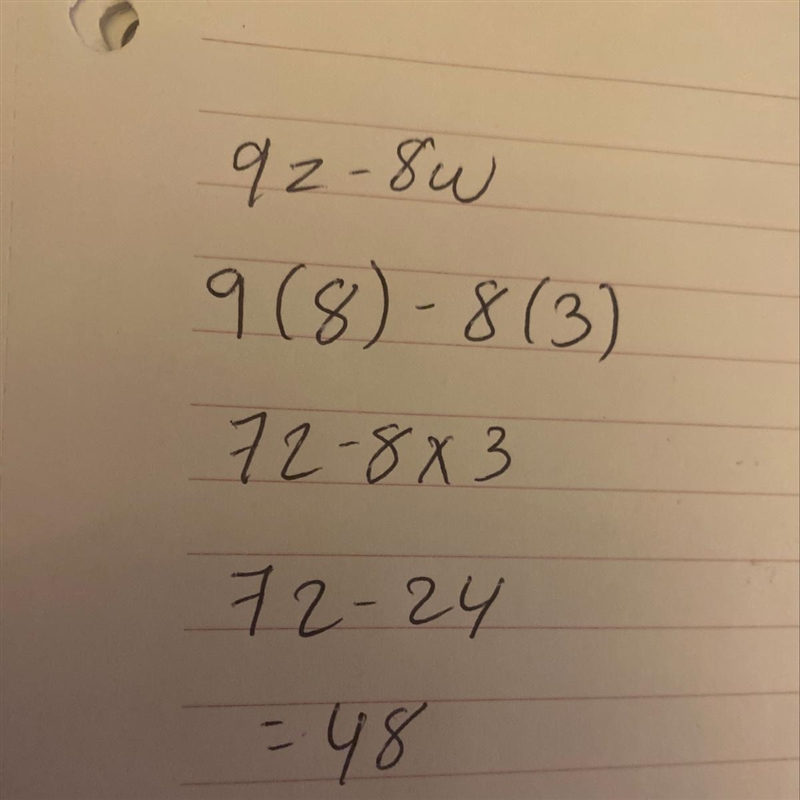 9z - 8w
9(8) - 8(3)
72 - 8 x 3
72 - 24
= 48